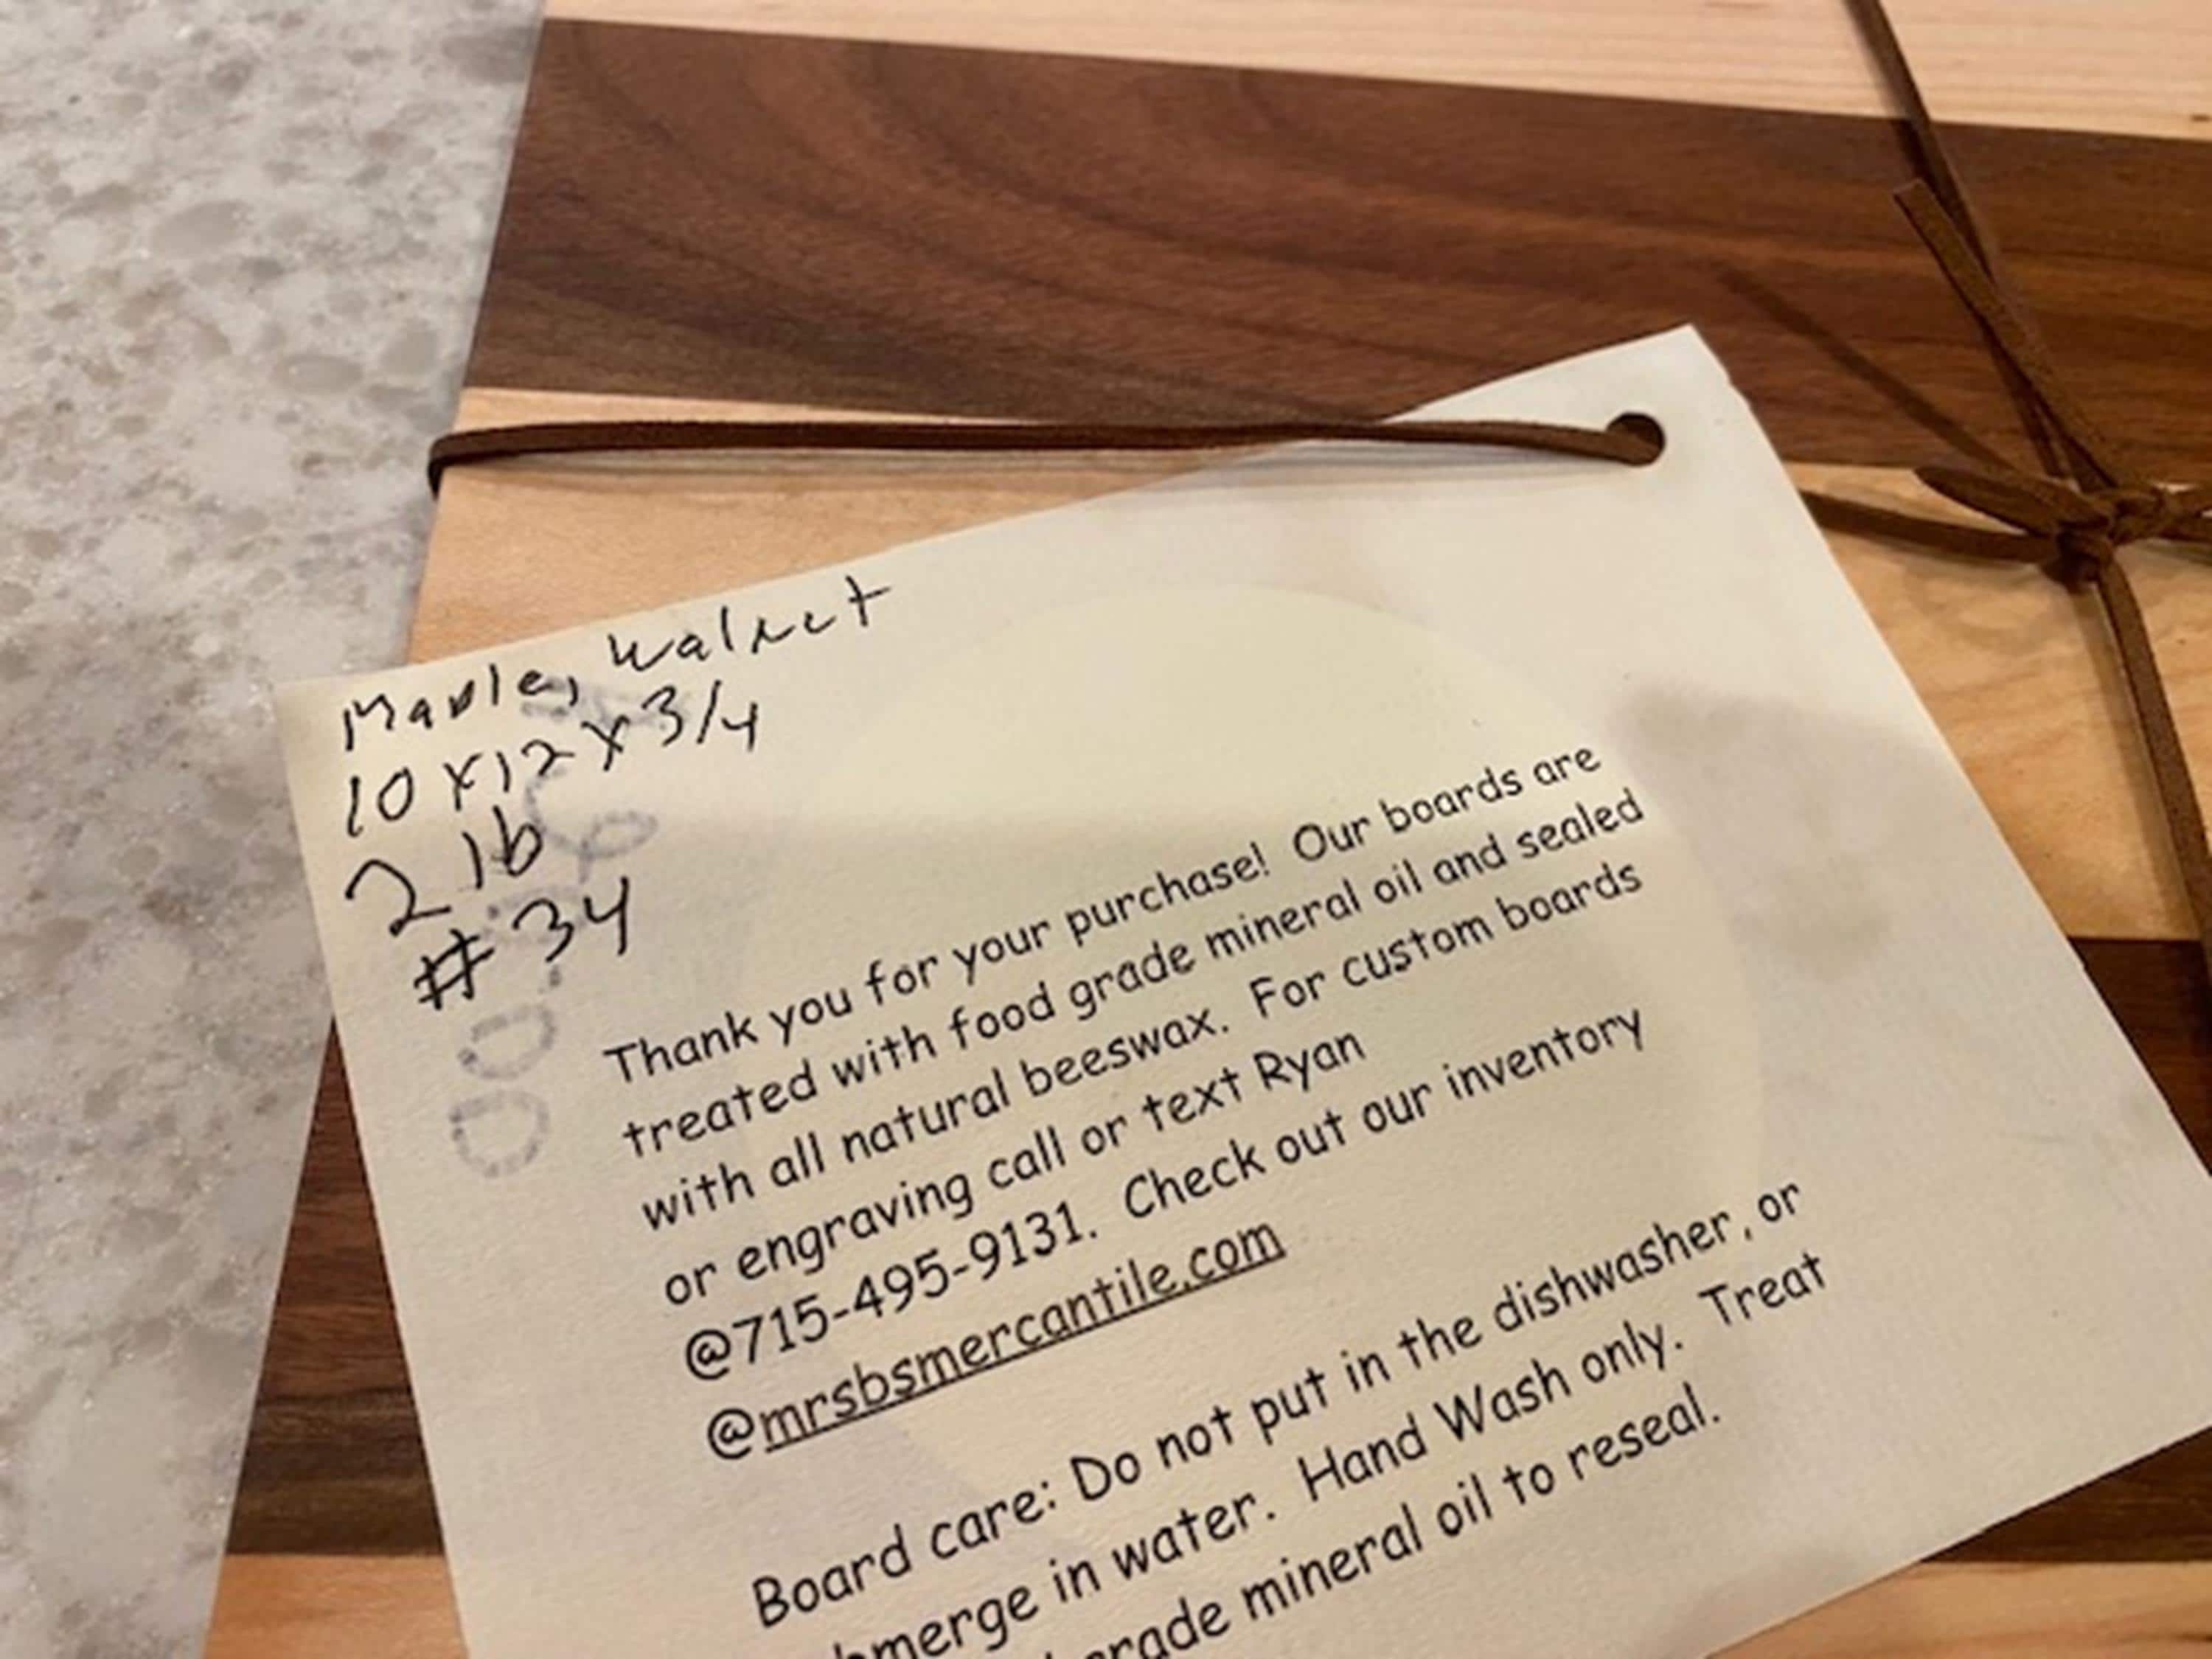 Maple, Walnut
10 x 12 x 3/4
2 lb
# 34
Thank you for your purchase! Our boards are
treated with food grade mineral oil and sealed
with all natural beeswax. For custom boards
or engraving call or text Ryan
@715-495-9131. Check out our inventory
@mrsbsmercantile.com
Board care: Do not put in the dishwasher, or
bmerge in water. Hand Wash only. Treat
grade mineral oil to reseal.